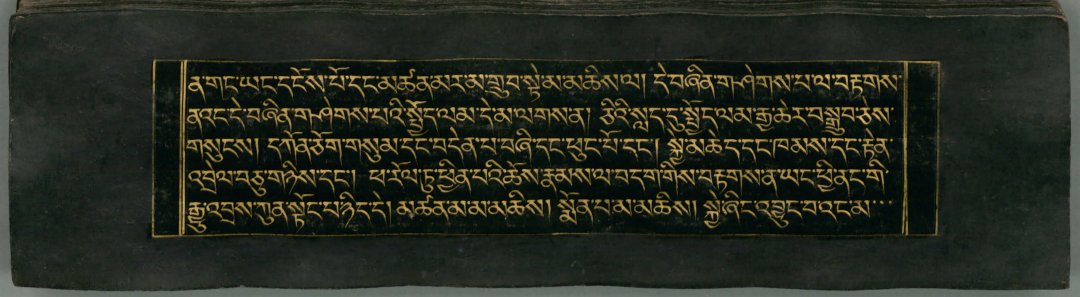 ན་གང་ཡང་དངོས་པོ་དང་མཚནམར་མ་གྲུབ་སྟེ་མ་མཆིས་ལ། དེ་བཞིན་གཤེགས་པ་ལ་བརྟགས་
ནའང་དེ་བཞིན་གཤེགས་པའི་སྤྱོད་ལམ་དེ་མ་ལགས་ན། ཅིའི་སླད་དུ་སྤྱོད་ལམ་རྒྱ་ཆེར་བསྒྲུབ་ཅེས་
གསུངས། དཀོན་ཅོག་གསུམ་དང་བདེན་པ་བཞི་དང་ཕུང་པོ་དང་། སྐྱ་མཆེད་དང་ཁམས་དང་རྟེན་
འབྲལ་བཅུ་གཉིས་དང་། ཕ་རོལ་ཏུ་ཕྱིན་པའི་ཆོས་རྣམས་ལ་བདག་གིས་བརྟགས་ན་ཡང་ཕྱི་ནང་གི་
རྒྱུ་འབྲས་ཀུན་སྟོང་པ་ཉིད་དེ། མཚན་མ་མ་མཆིས། སྨོན་པ་མ་མཆིས། སྐྱེ་ཞིང་འབྱུང་བ་འང་མ་